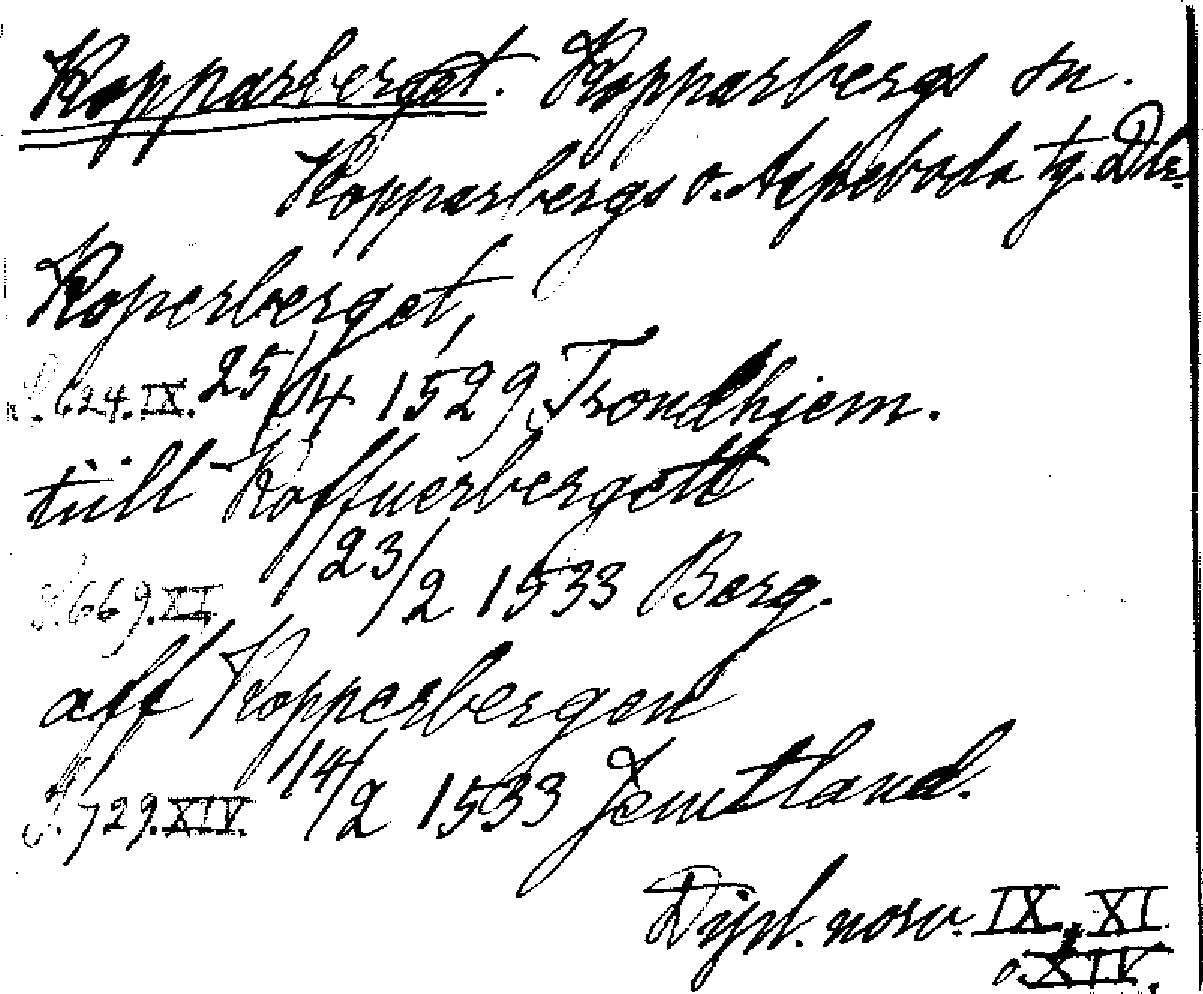 Kopparberget. Kopparbergs sn.
Kopparbergs o. Aspeboda tg. Dlr.
Koperberget,
S. 624. IX. 25/04 1529, Trondhjem.
tüll Koffuerbergett
S. 669. XI. 23/2 1533 Berg.
aff Kopperbergen
S. 729. XIV. 14/2 1533 Jemtland.
Dipl. norv. IX, XI
o. XIV.